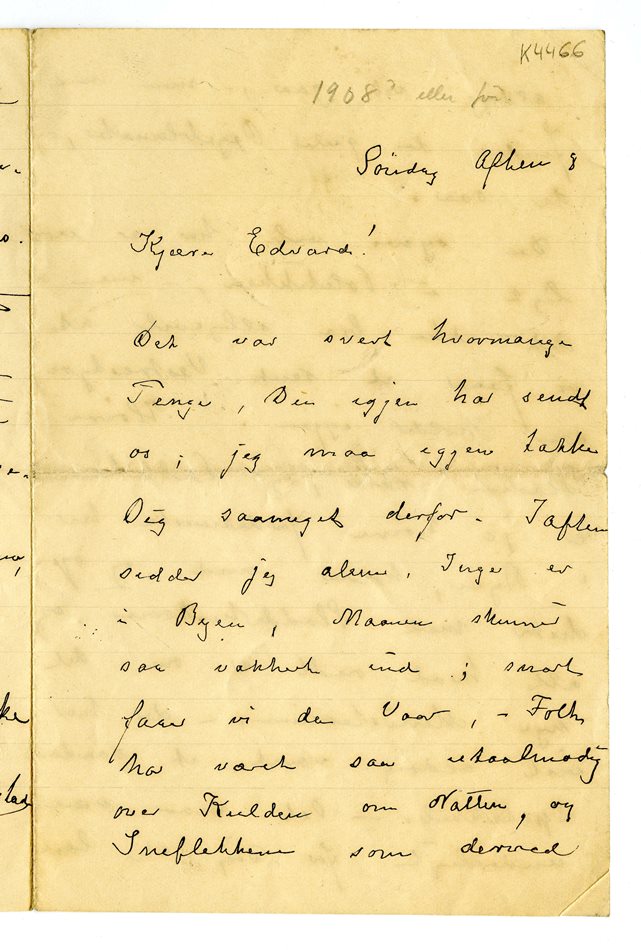 K4466
1908? eller før
Søndag Aften 8
Kjære Edvard!
Det var svert hvormange
Penge, Du igjen har sendt
os, jeg maa iggen takke
Dig saameget derfor. Iaften
sidder jeg alene, Inger er
i Byen, Maanen skinner
saa vakkert ind; snart
faar vi da Vaar, – Folk
har været saa utaalmodig
over Kulden om Natten, og
Sneflekkene som derved